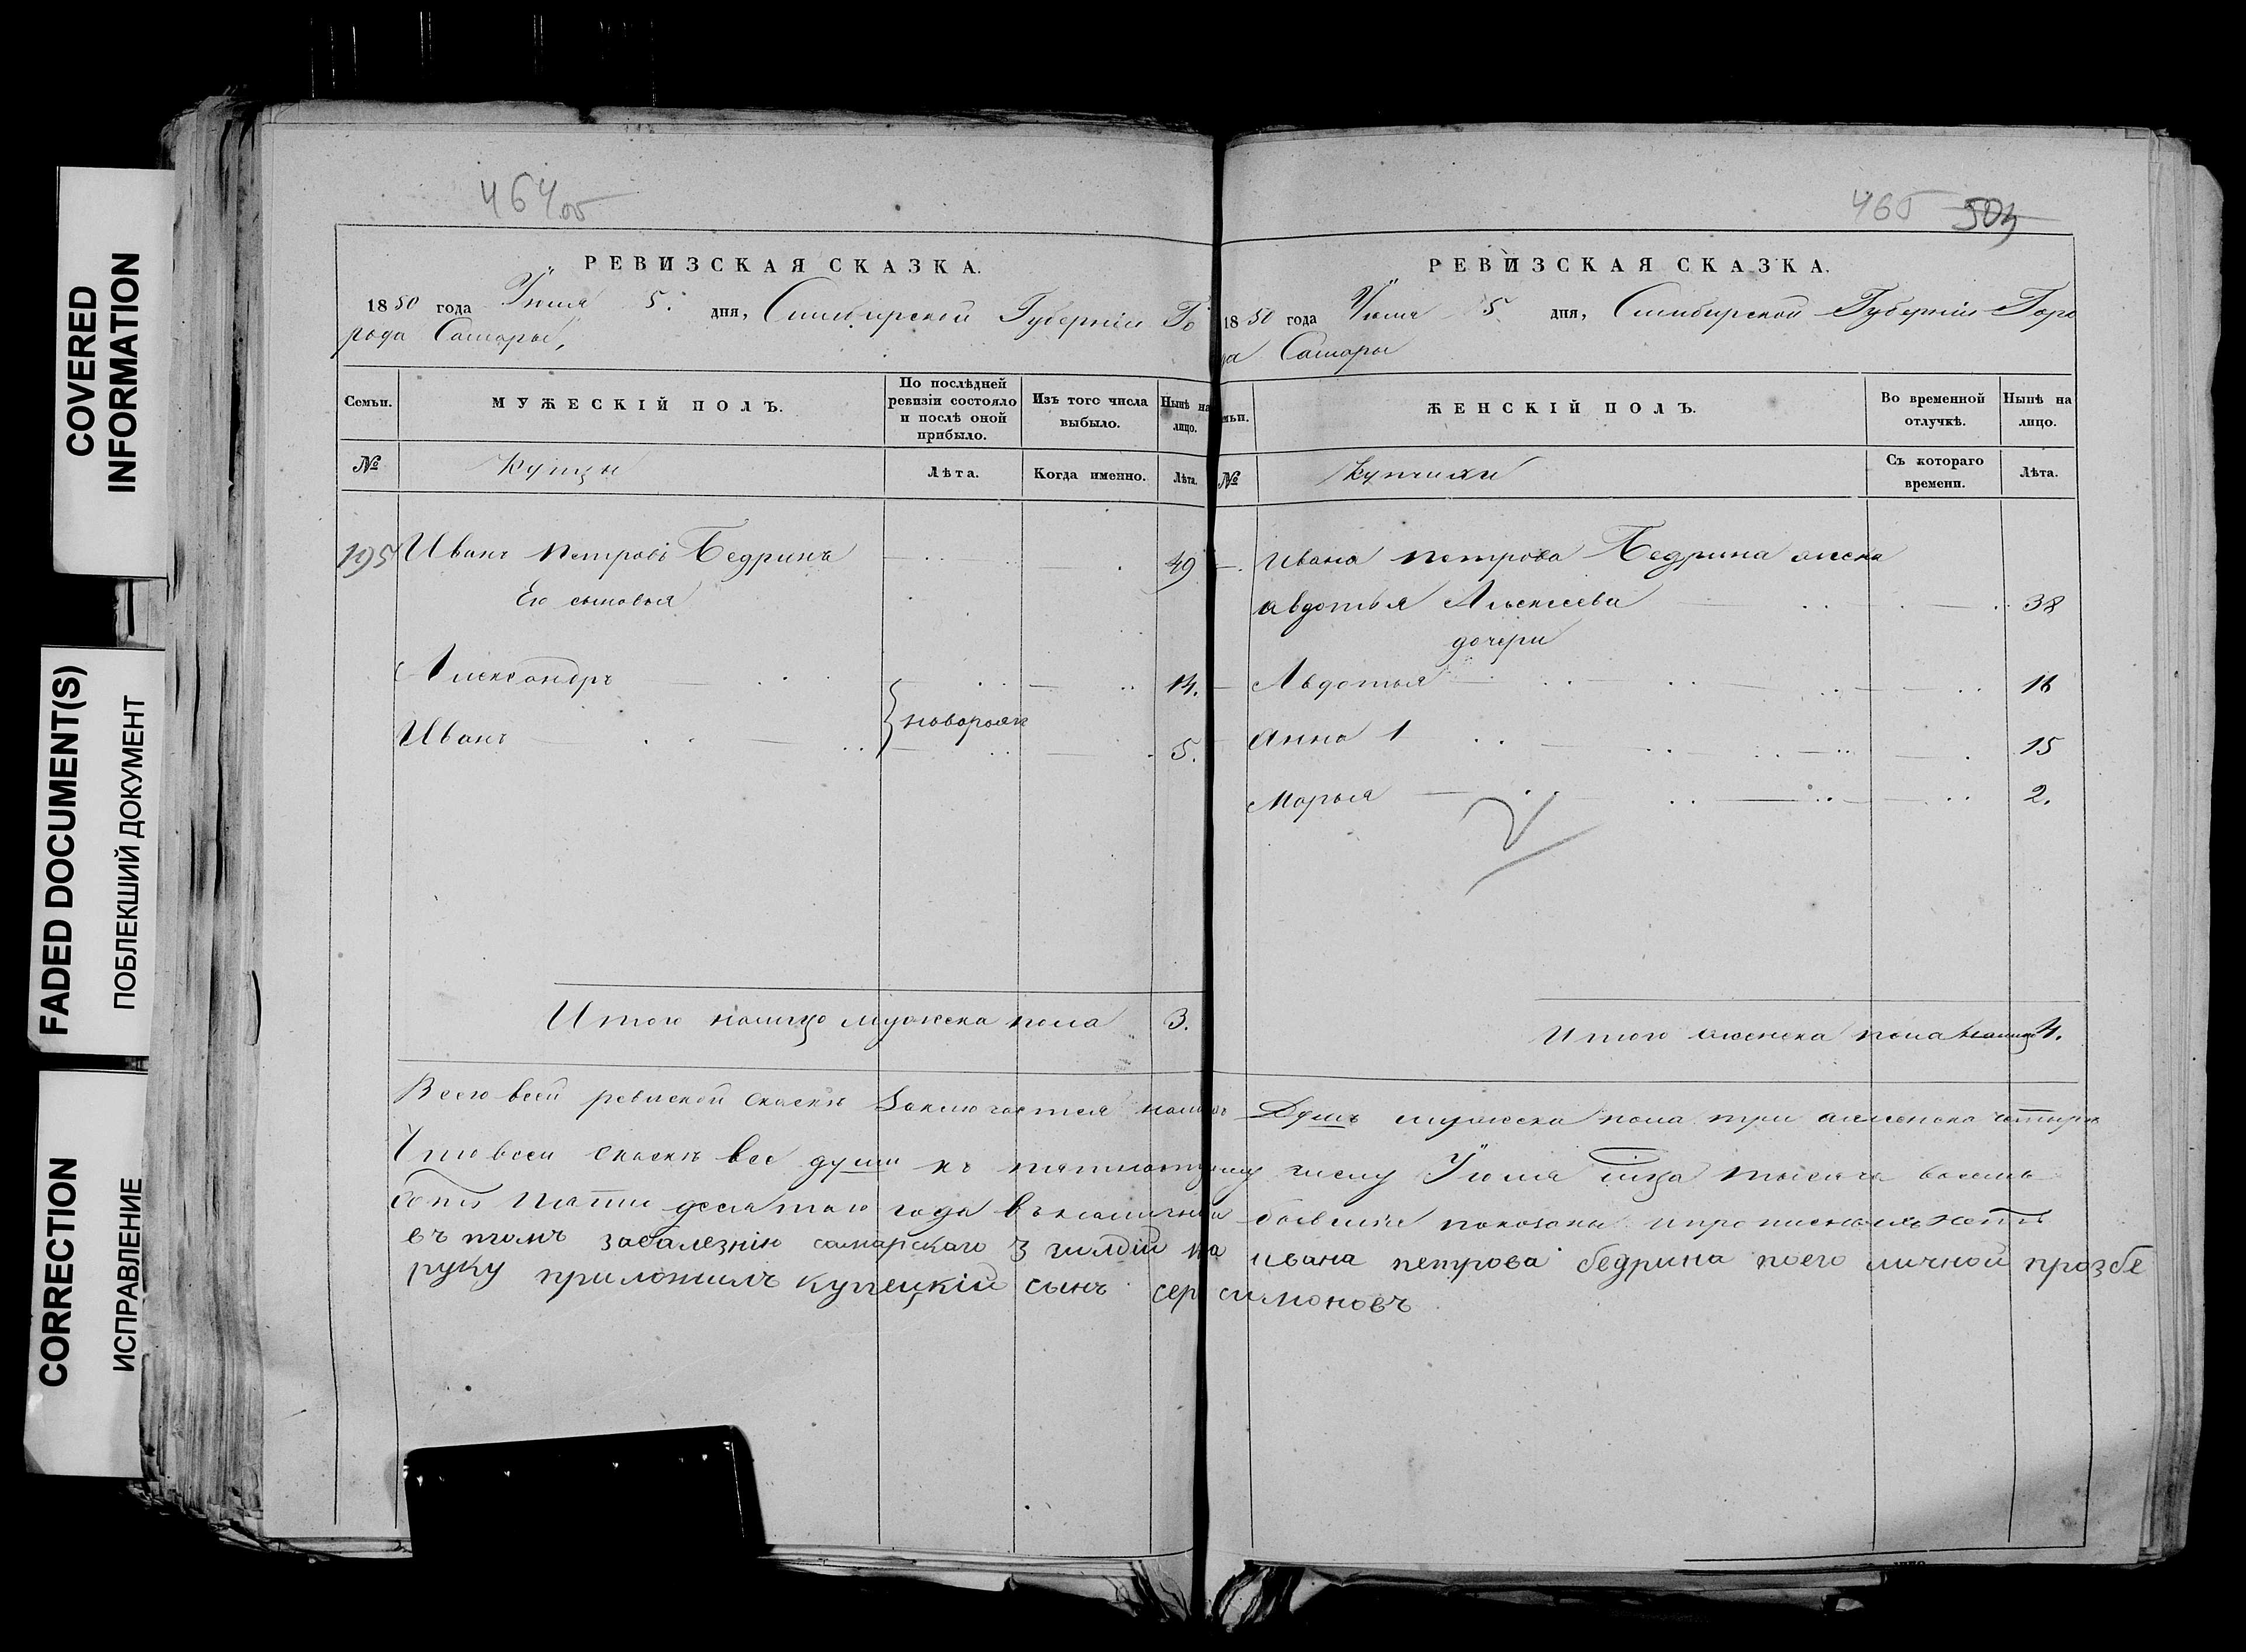 COVERED
INFORMATION
FADED DOCUMENT(S)
ПОБЛЕКШИЙ ДОКУМЕНТ
CORRECTION
ИСПРАВЛЕНИЕ
464 об
РЕВИЗСКАЯ СКАЗКА.
1850 года Іюля 5. дня, Симбирской Губерніи Го
рода Самары,
Семьи.
МУЖЕСКІЙ ПОЛЪ.
По послѣдней
ревизіи состояло
и послѣ оной
прибыло.
Изъ того числа
выбыло.
Нынѣ на
лицо.
№
Купцы
Лѣта.
Когда именно.
Лѣта.
195 Иванъ Петровъ Бедринъ 49
Его сыновья
Александръ 14.
новорож
Иванъ 5.
Итого налицо мужеска пола 3.
465 503
РЕВИЗСКАЯ СКАЗКА.
1850 года Іюля 5 дня, Симбирской Губерніи Горо
да Самары
мьи.
ЖЕНСКІЙ ПОЛЪ.
Во временной
отлучкѣ.
Нынѣ на
лицо.
№
Купчихи
Съ котораго
времени.
Лѣта.
Ивана Петрова Бедрина жена
Авдотья Алексеева 38
дочери
Авдотья 18
Анна 1 15
Марья 2.
Итого женска пола налицо 4.
Всего всей ревиской скаскѣ Заключается Душъ мужеска пола три аженска четыри
Что всеи скаскѣ все души къ числу Іюля мца тысяча восемь
сотъ года показаны
въ томъ заболезнію самарскаго 3 гилдіи ивана петрова бедрина поего личной прозбе
руку приложилъ купецкій сынъ симоновъ